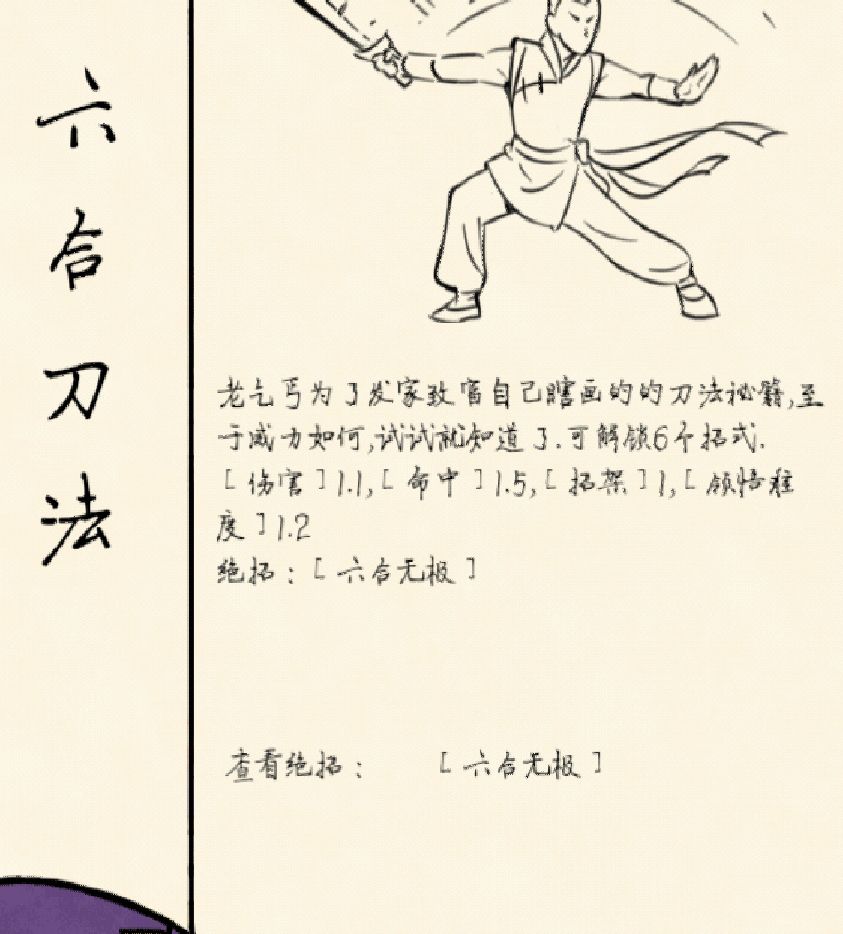 六合刀法
老乞丐为了发家致富自己瞎画的的刀法秘籍,至
于威力如何,试试就知道了.可解锁6个招式.
[伤害]1.1,[命中]1.5,[招架]1,[领悟程
度]1.2
绝招:[六合无极]
查看绝招: [六合无极]